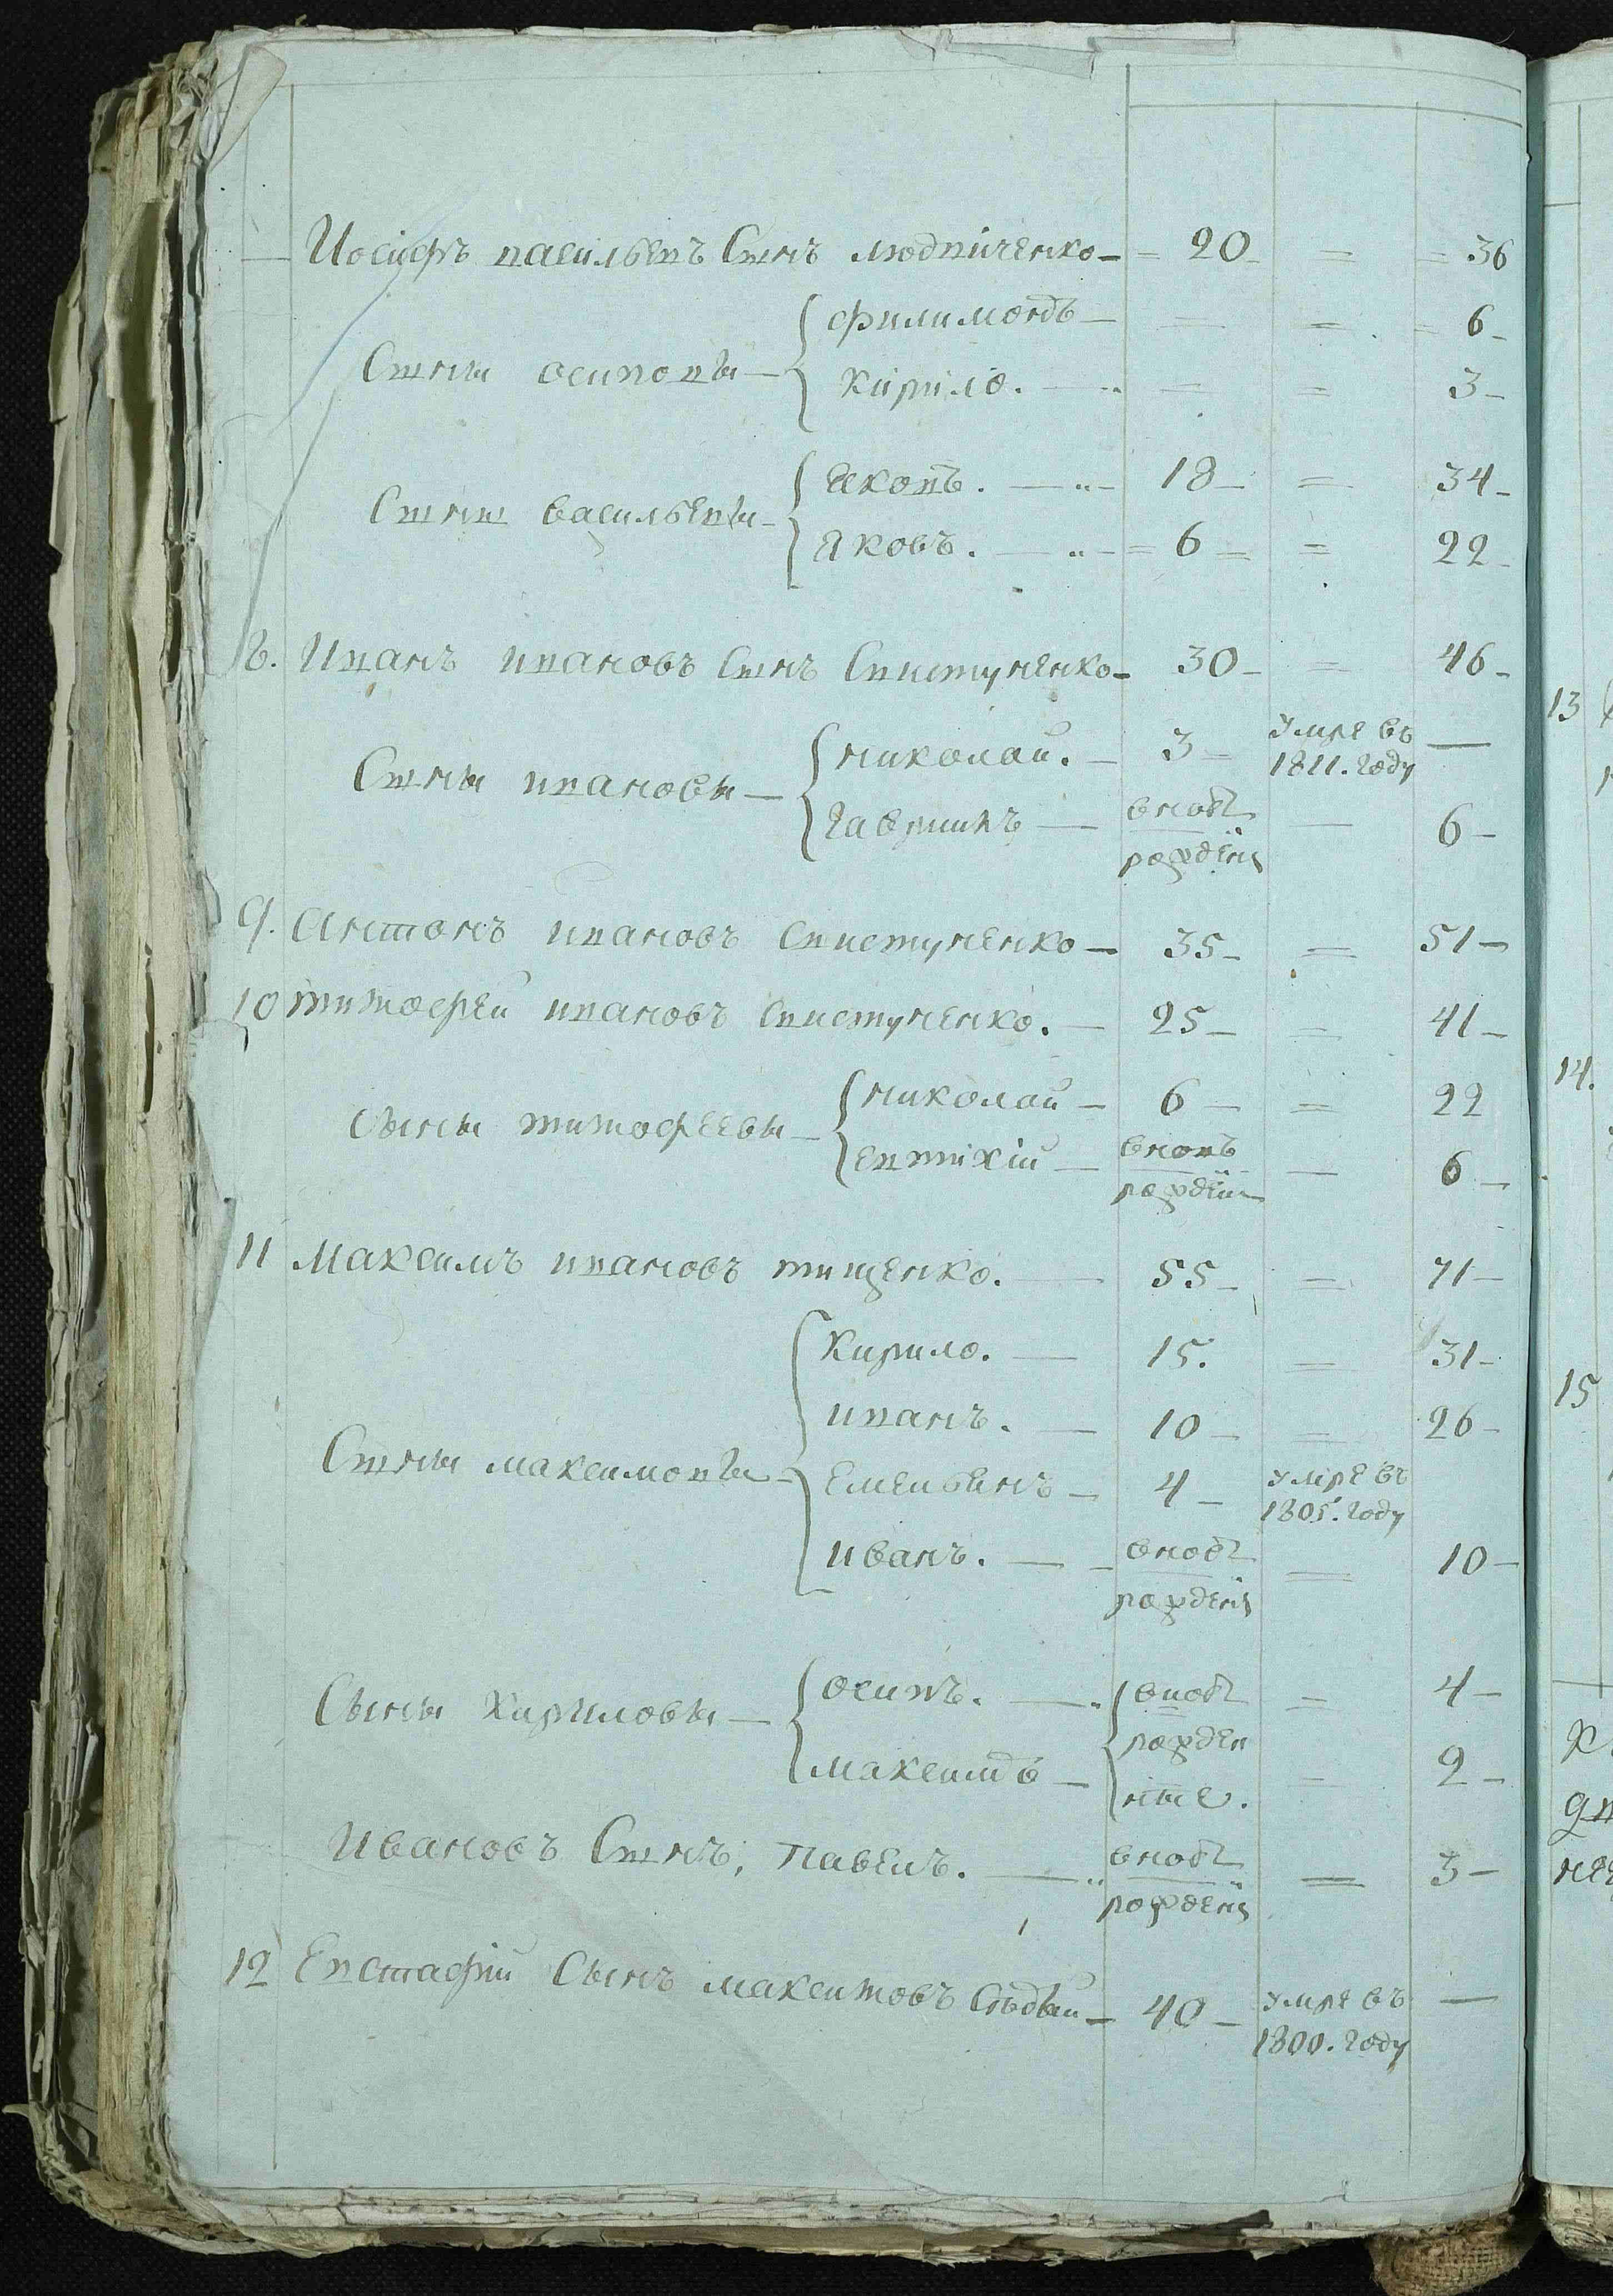 Иосифъ васильевъ Сынъ людвиченко 20 = 36
Сыны осиповы
филимонъ = = 6
Кирило. = = 3
Сыны васильевы
Яковъ. 18 = 34
Яковъ. 6 = 22
8. Иванъ ивановъ Сынъ Свистуненко 30 = 46
Сыны ивановы
николай. 3 умре въ
1811. году —
гавриилъ вновь
рожденъ — 6
9. Антонъ ивановъ Свистуненко 35 = 51
10 тимофей ивановъ свистуненко. 25 = 41
Сыны тимофеевы
николай 6 = 22
евтихій вновь
рожденъ — 6
11 Максимъ ивановъ тищенко. 55 = 71
Сыны максимовы
Кирило. 15. = 31
иванъ. 10 = 26
Емельянъ 4 умре въ
1805. году
иванъ. вновь
рожденъ = 10
Сыны Кириловы
осипъ. вновь = 4
рожден
максимъ ные. = 2
Ивановъ Сынъ, павелъ. вновь
рожденъ = 3
12 Евстафій Сынъ максимовъ Сѣдый 40 умре въ
1800. году —
13
14.
15